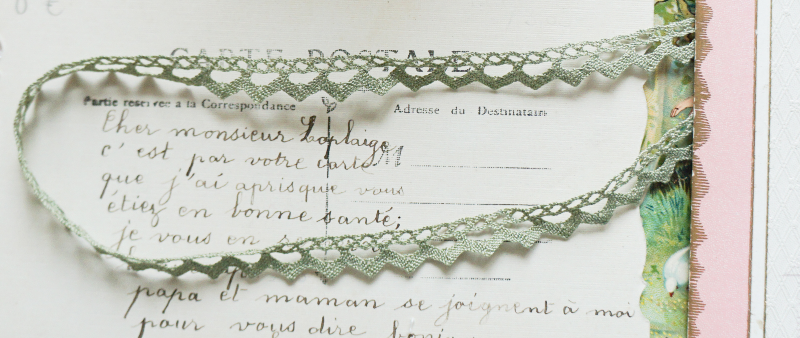 CARTE POSTALE
Partie reservée a la Correspondance
Adresse du Destinataire
Cher monsieur Laplaige
c'est par votre carte
M
que j'ai aprisque vous
étiez en bonne santé;
je vous en
papa et maman se joignent à moi
pour vous dire